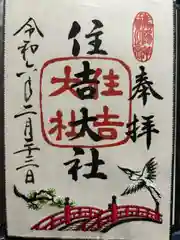 奉拝
住吉大社
住吉
大社
令和六年二月二十二日